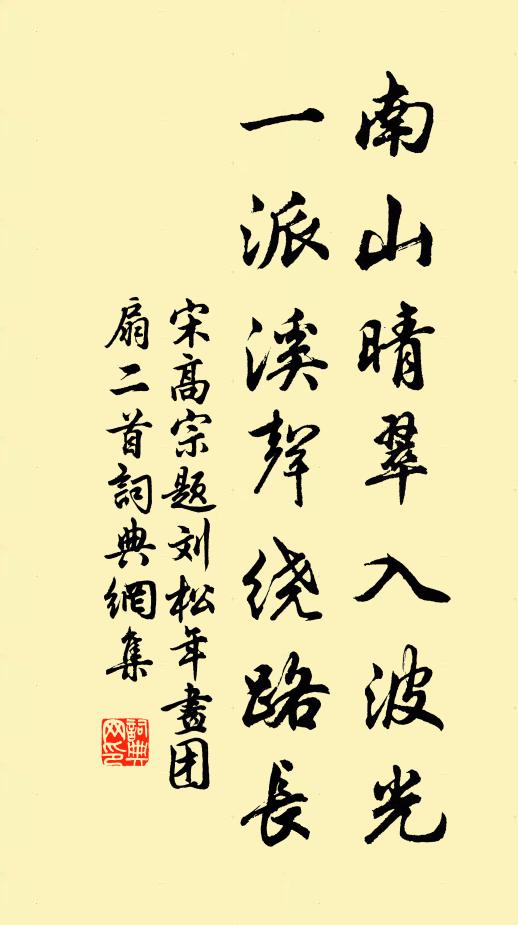 南山晴翠入波光
一派溪聲绕路長
宋高宗题刘松年畫团
扇二首詞典網集
詞典
网印